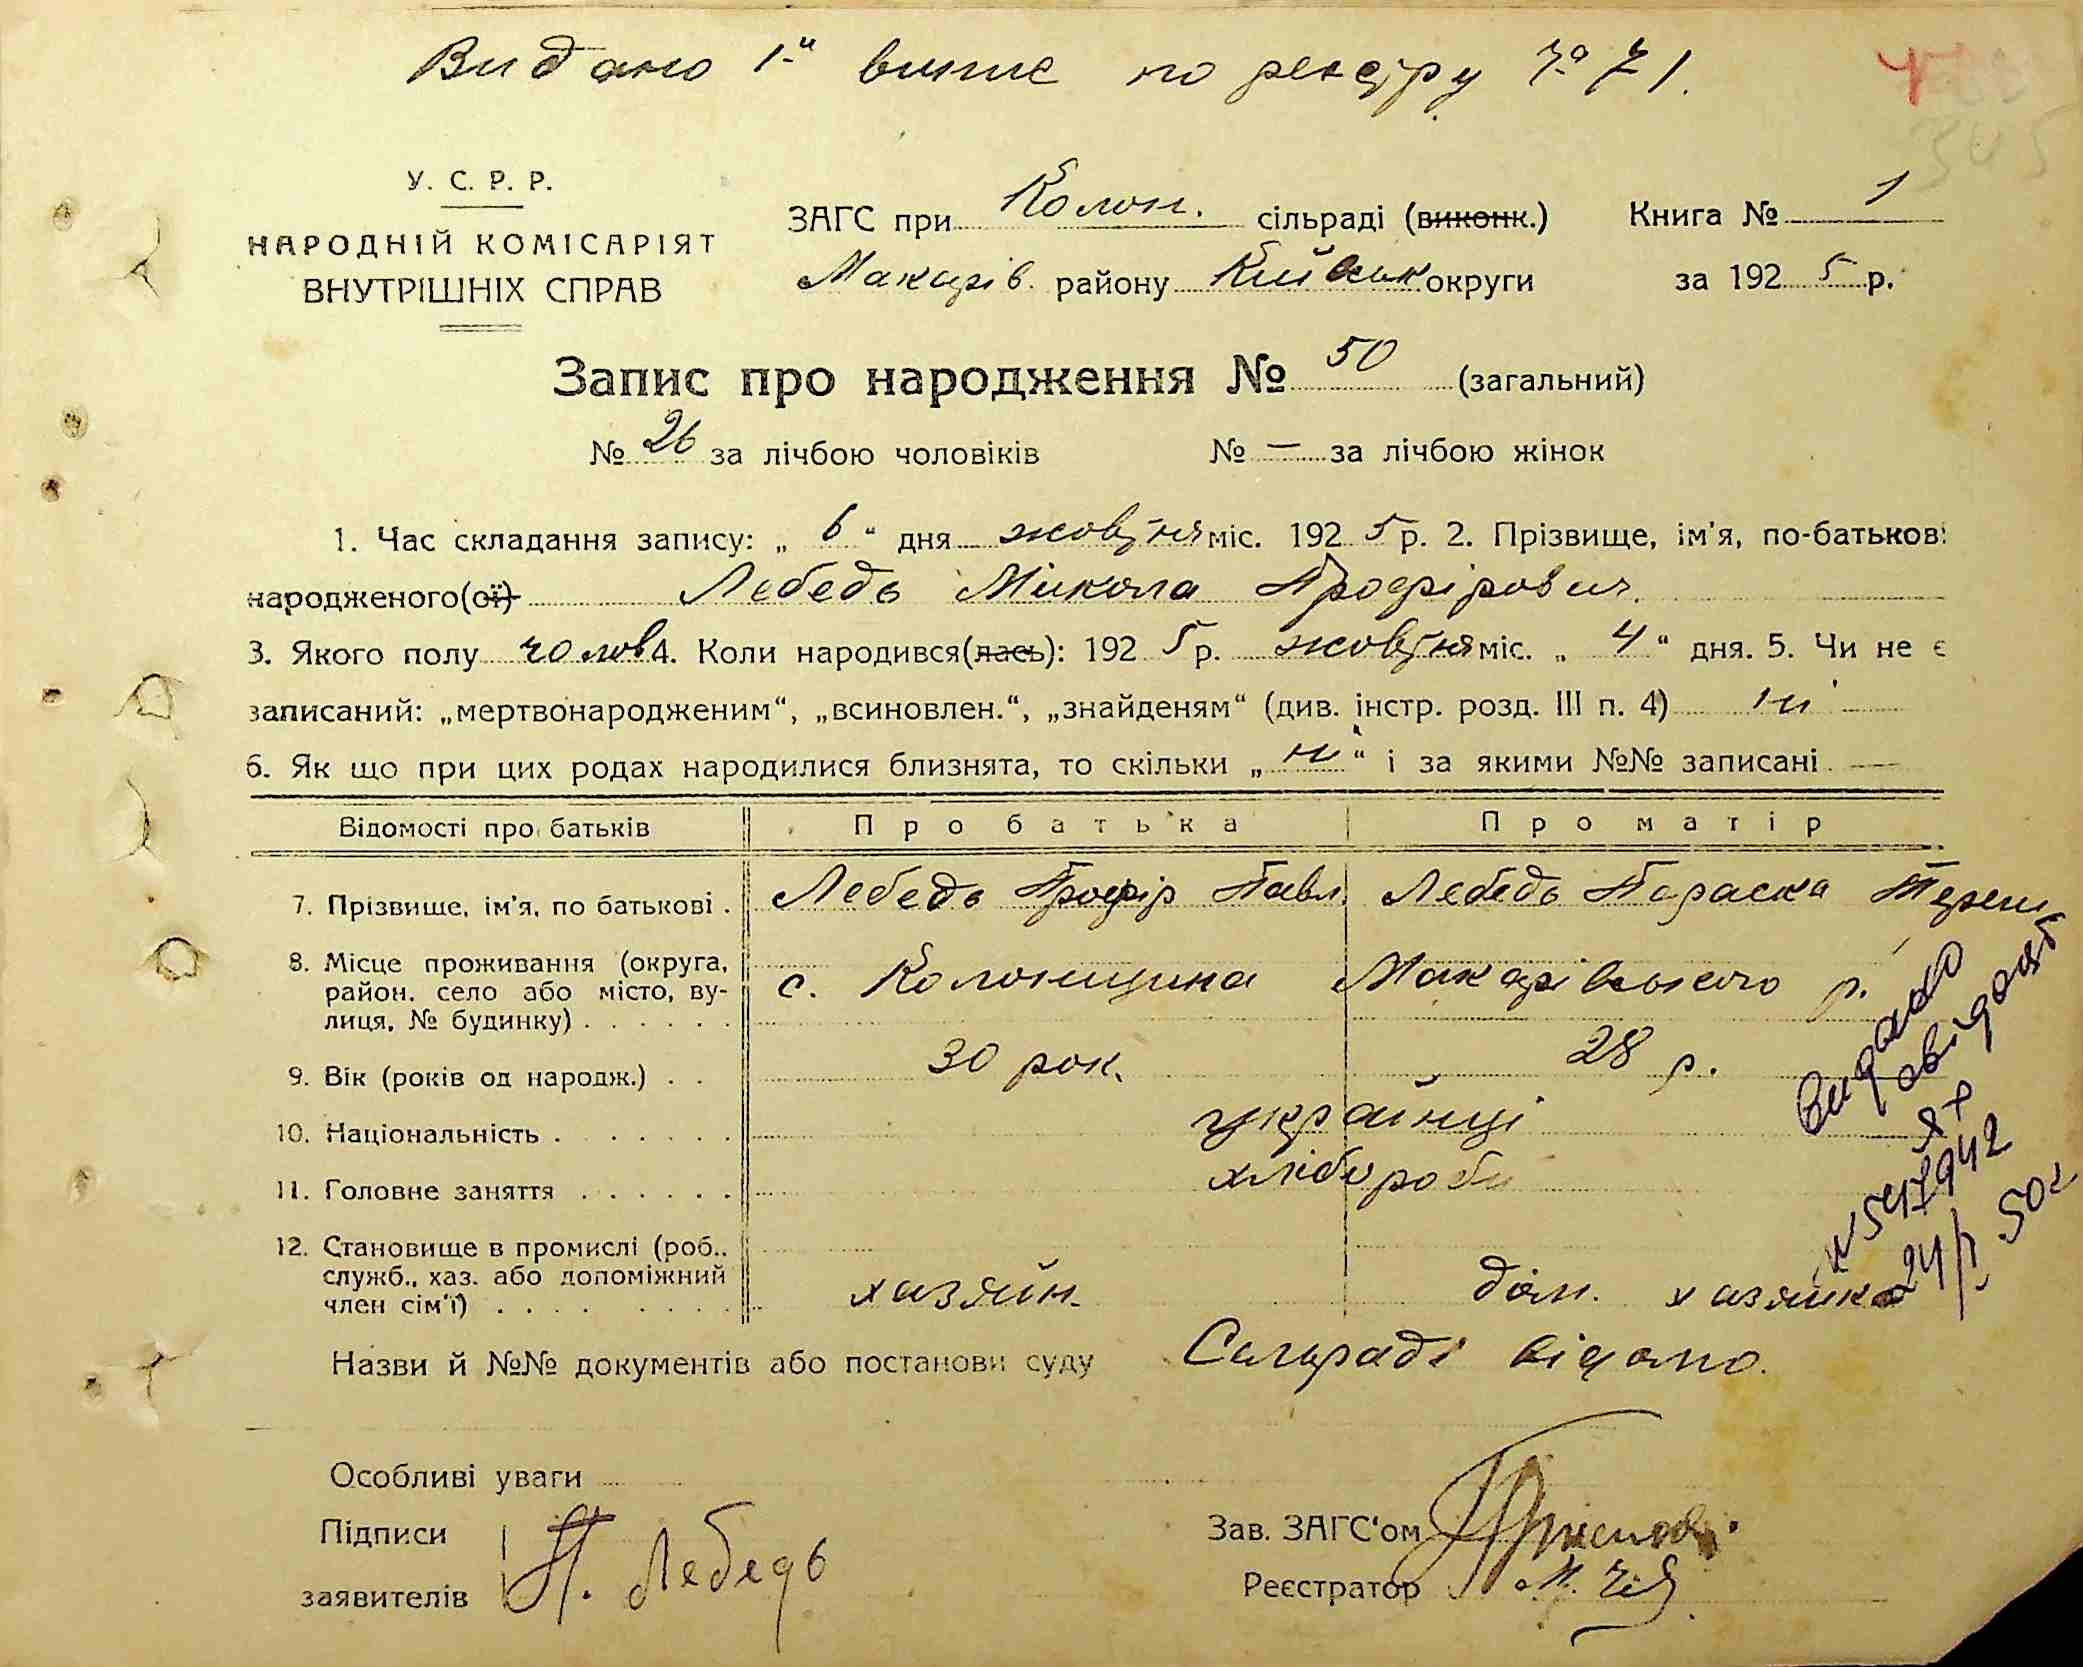 Видано 1й випис по реєстру № 71.
У. С. Р. Р.
НАРОДНІЙ КОМІСАРІЯТ
ВНУТРІШНІХ СПРАВ
ЗАГС при Колон. сільраді (виконк.) Книга № 1
Макарів. району Київськ округи за 1925 р.
Запис про народження № 50 (загальний)
№ 26 за лічбою чоловіків № — за лічбою жінок
1. Час складання запису: „ 6 “ дня жовтня міс. 1925 р. 2. Прізвище, ім'я, по-батькові
народженого(ої) Лебедь Микола Профірович.
3. Якого полу чолов 4. Коли народився(лась): 1925 р. жовтня міс. „ 4 “ дня. 5. Чи не є
записаний: „мертвонародженим“, „всиновлен.“, „знайденям“ (див. інстр. розд. III п. 4) ні
6. Як що при цих родах народилися близнята, то скільки „ ні “ і за якими №№ записані —
Відомості про батьків Про батька Про матір
7. Прізвище, ім'я, по батькові . Лебедь Профір Павл. Лебедь Параска Терешк
8. Місце проживання (округа,
район. село або місто, ву-
лиця, № будинку) . . . . . . с. Колонщина Макарівського р.
9. Вік (років од народж.) . . 30 рок. 28 р.
10. Національність . . . . . . . українці
11. Головне заняття . . . . . . хлібороби
12. Становище в промислі (роб.,
служб., хаз. або допоміжний
член сім'ї) . . . . . . . . хазяїн. дом. хазяйка
Видано
свідоцт
№ 547942
24/ 50г
Назви й №№ документів або постанови суду Сельраді відомо.
Особливі уваги
Підписи
заявителів П. Лебедь
Зав. ЗАГС'ом
Реєстратор